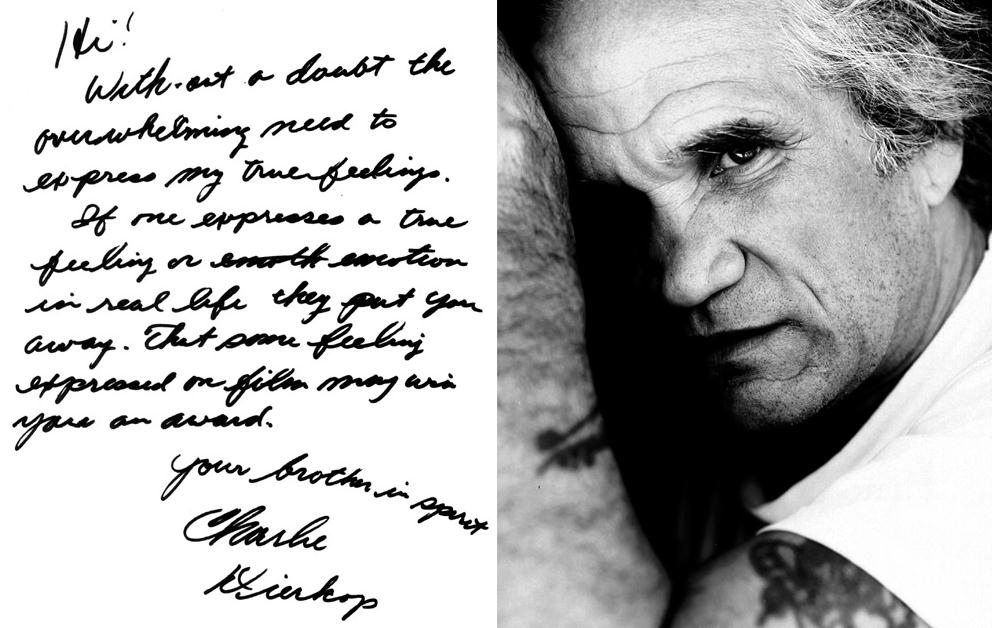 Hi!
With-out a doubt the
overwhelming need to
express my true feelings.
If one expresses a true
feeling or emotion
in real life they put you
away. That same feeling
expressed on film may win
you an award.
your brother in spirit
Charlie
Dierkop